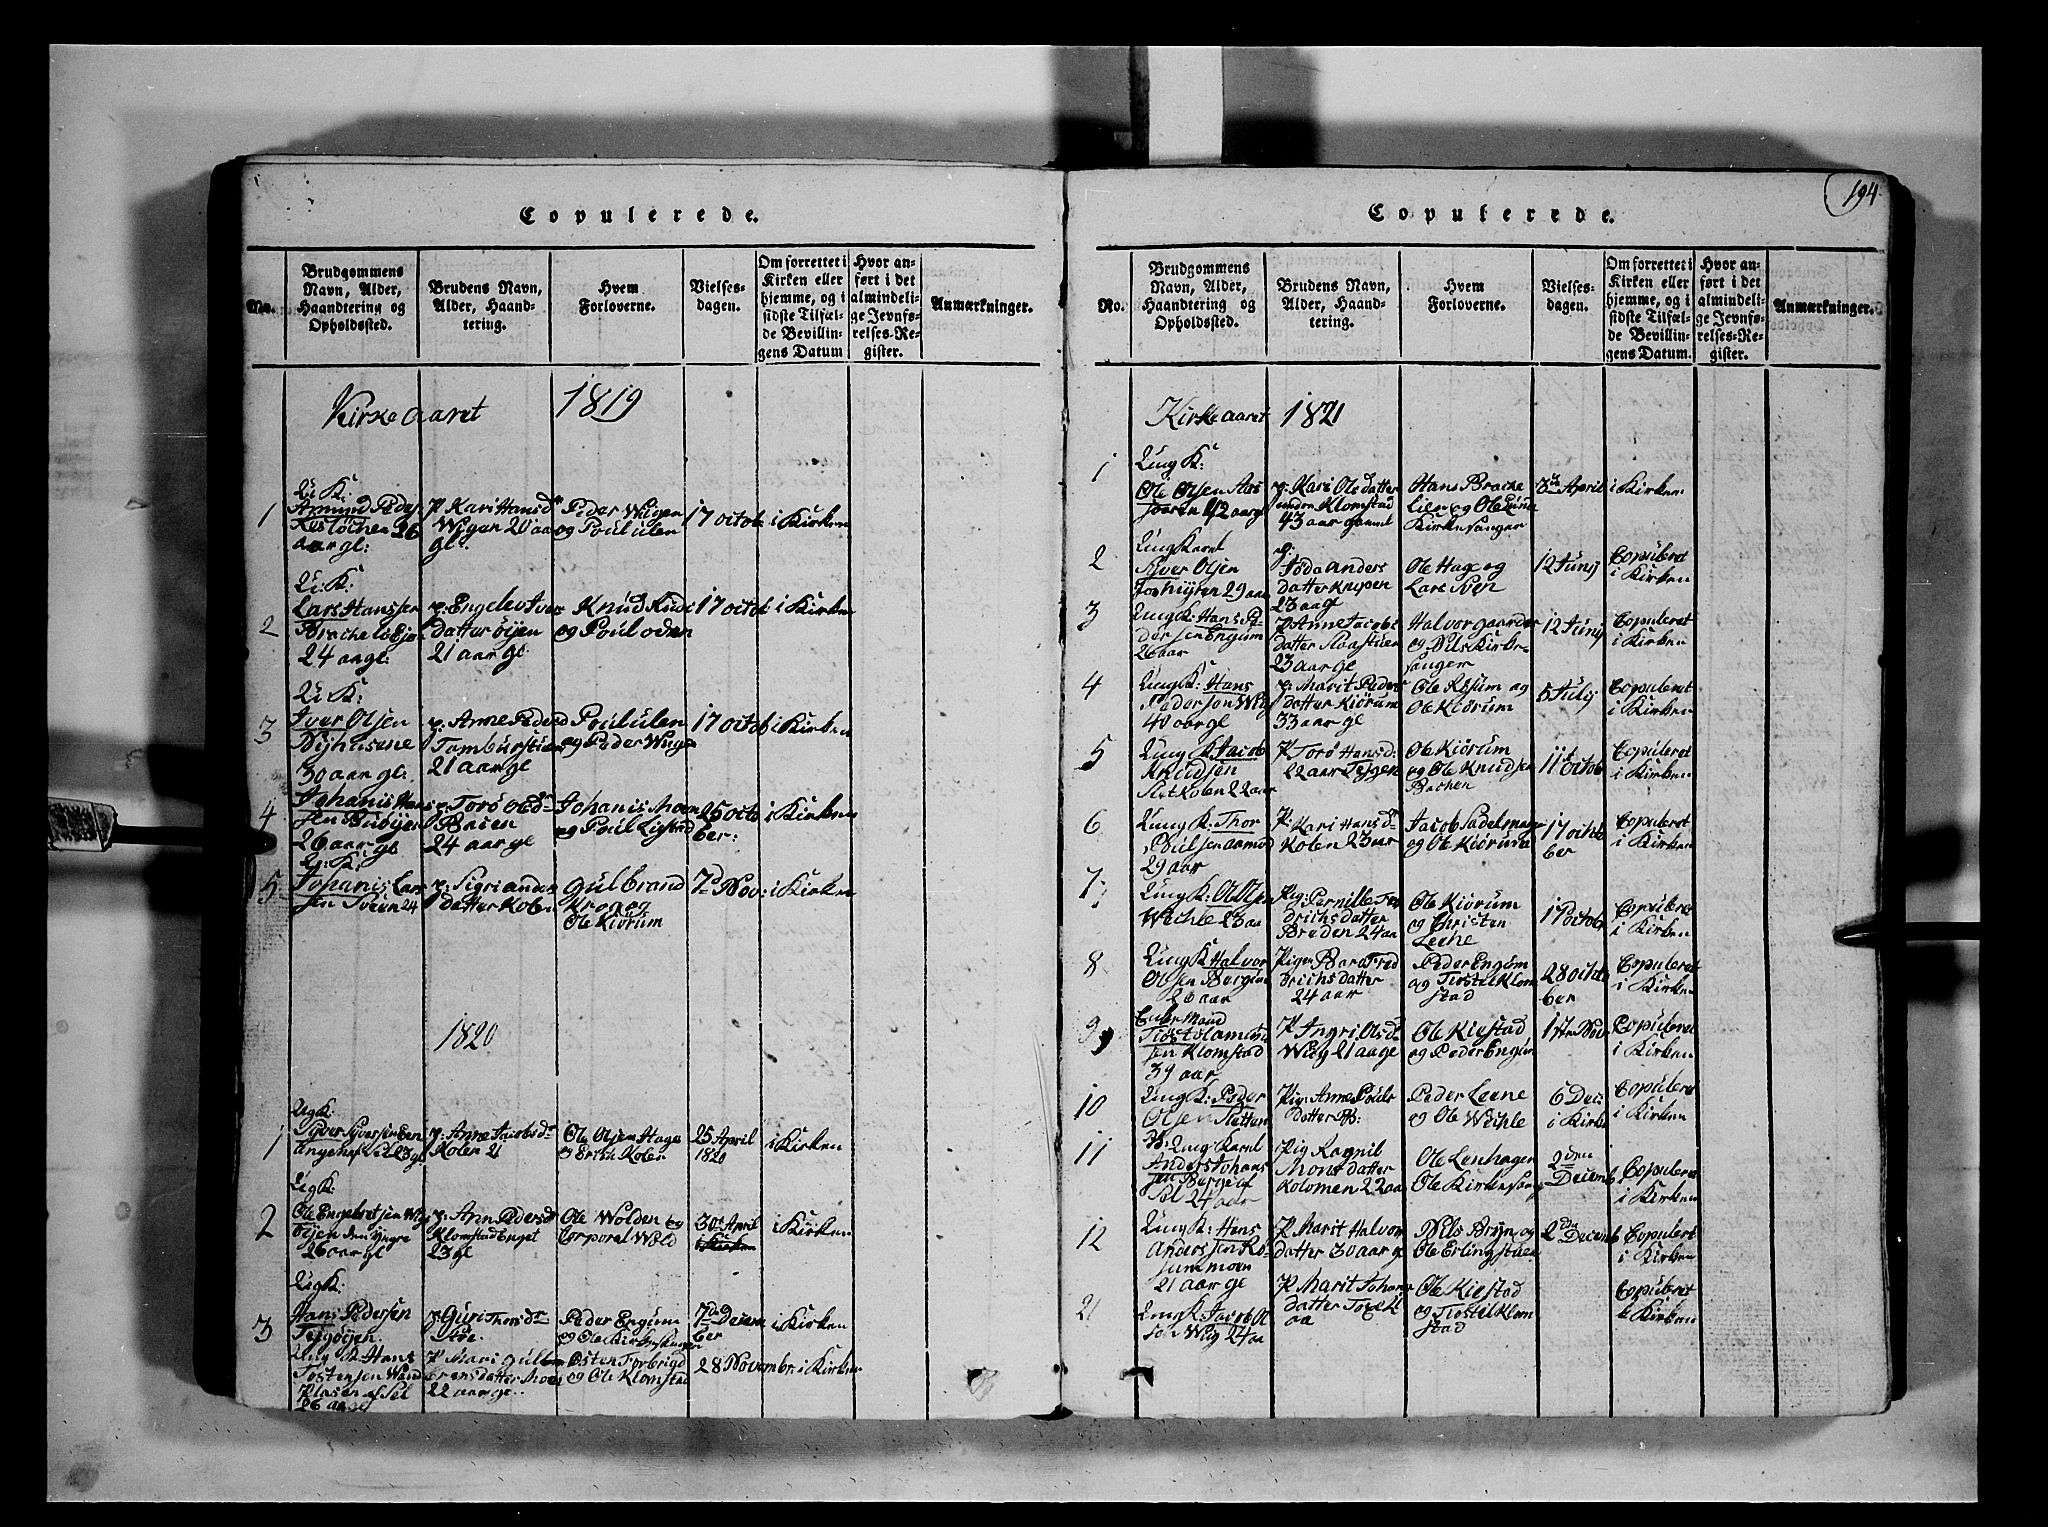 194
Copulerede.
No.
Brudgommens
Navn, Alder,
Haandtering og
Opholdssted.
Brudens Navn,
Alder, Haand-
tering.
Hvem
Forloverne.
Vielses-
dagen.
Om forrettet i
Kirken eller
hjemme, og i
sidste Tilfæl-
de Bevillin-
gens Datum
Hvor an-
ført i det
almindeli-
ge Jevnfø-
relses-Re-
gister.
Anmærkninger.
Kirkeaaret 1819
1
U: K:
Amund Peders
26
aar gl:
P Kari Hansd
Wigen 20 aa
gl:
Peder Wigen
og Poul Ulen
17 octob
i Kirken
2
U: K:
Lars Hansen
24 aar gl:
p: Engelev Iver
datter öijen
21 aar gl
Knud
og Poul oden
17 octob
i Kirken
3
U: K:
Iver Olsen
Nÿhusene
30 aar gl:
p: Anne Peders
21 aar gl
Poul Ulen
og Peder Wigen
17 octob
i Kirken
4
Johanis Hans
sen
26 aar gl
p: Torö olsd
24 aar gl
Johanis Moen
og Poul
25 octo
ber:
i Kirken
5
U: K:
Johanis Lars
sen Sveen 24
p: Sigri anders
datter Kolen
Gulbrand
Krog og
Ole Kiörum
7d Nov:
i Kirken
1820
1
Ug K:
Syver Syversen
p: Anne Jacobsd
Kolen 21
Ole Olsen Hage
og Erich Kolen
25 April
1820
i Kirken
2
Ug K:
Ole Engebretsen
öijen den Yngre
26 aar gl
p: Ann Pedersd
Klomstad Enget
23 gl
Ole Wolden og
Corporal Wold
30 April
i Kirken
i Kirken
3
Ug K:
Hans Pedersen
p: Guri Thorsd
Peder Engum
og Ole Kirkesanger
7de Decem
ber
i Kirken
Ung K: Hans
Tostensen
af Sel
26 aar gl
P Mari Gulb
22 aar gl.
og Ole Klomstad
28 Novembr
i Kirken
Copulerede.
No.
Brudgommens
Navn, Alder,
Haandtering og
Opholdssted.
Brudens Navn,
Alder, Haand-
tering.
Hvem
Forloverne.
Vielses-
dagen.
Om forrettet i
Kirken eller
hjemme, og i
sidste Tilfæl-
de Bevillin-
gens Datum.
Hvor an-
ført i det
almindeli-
ge Jevnfø-
relses-Re-
gister.
Anmærkninger.
Kirkeaaret 1821
1
Ung K:
Ole Olsen Aas
42 aar gl
p: Kari Olsdatter
Klomstad
43 aar gaml
Hans Brække
lien og Ole Lunde
Kirkesanger
April
i Kirken
2
Ung Karl
Syver Olsen
29 aar
Anders
datter
23 aar gl
Ole Hage og
Lars Sveen
12 Junÿ
Copuleret
i Kirken
3
Ung K: Hans Pe
dersen Engum
26 aar
P Anne Jacobs
datter Raastuen
23 aar gl
Halvor Gaarder
og Nils Kirke-
sanger
12 Junÿ
Copuleret
i Kirken
4
Ung K: Hans
Pedersen Wig
40 aar gl
p: Marit Peders
datter Kiörum
33 aar gl
Ole og
Ole Kiörum
5 Julÿ
Copuleret
i Kirken
5
Ung K: Jacob
Knudsen
Kolen 22 aar
P Torö Hansd:
22 aar
Ole Kiörum
og Ole Knudsen
Bachen
11te octob
Copuleret
i Kirken
6
Ung K: Thor
Nielsen aamod
29 aar
P: Kari Hansd
Kolen 23 aar
Jacob Sadelmager
og Ole Kiörum
17 octo
ber
Copuleret
i Kirken
7
Ung K: Ol Olsen
Wehle 23 aa
Pig: Pernille Fre
drichsdatter
Breden 24 aa
Ole Kiörum
og Christen
Leene
17 octob
Copuleret
i Kirken
8
Ung K Halvor
Olsen Bergum
26 aar
Pige Bara Fred
drichsdatter
24 aar
Peder Engum
og Tiostel Klom
stad
28 octo
ber
Copuleret
i Kirken
9
Enke Mand
Tiöstol
sen Klomstad
39 aar
P Ingri Olsd
Wig 21 aa gl
Ole Kiestad
og Peder Engum
1ste Nov
Copuleret
i Kirken
10
Ung K: Peder
Olsen Sletten
Pig: Anne Pouls
datter
Peder Leene
og Ole Wehle
6 Dec:
i Kirke
Copuleret
i Kirken
11
Ung Karl
Anders Johans
sen Berge af
Sel 24 aar
Pig Ragnil
Monsdatter
Kolomoen 22 aa
Ole Lenhagen
Ole Kirkesang
2den
Decemb
Copuleret
i Kirken
12
Ung K: Hans
Anderssen
21 aar gl
P Marit Halvor
datter 30 aar gl
Nils Brÿn og
Ole Erlingstuen
2den Decemb
Copuleret
i Kirken
21
Ung K Jacob Ol
sen Wig 24 aa
P Marit Johans
datter
aa
Ole Kiestad
og Tiostel Klom
stad
Copuleret
i Kirken